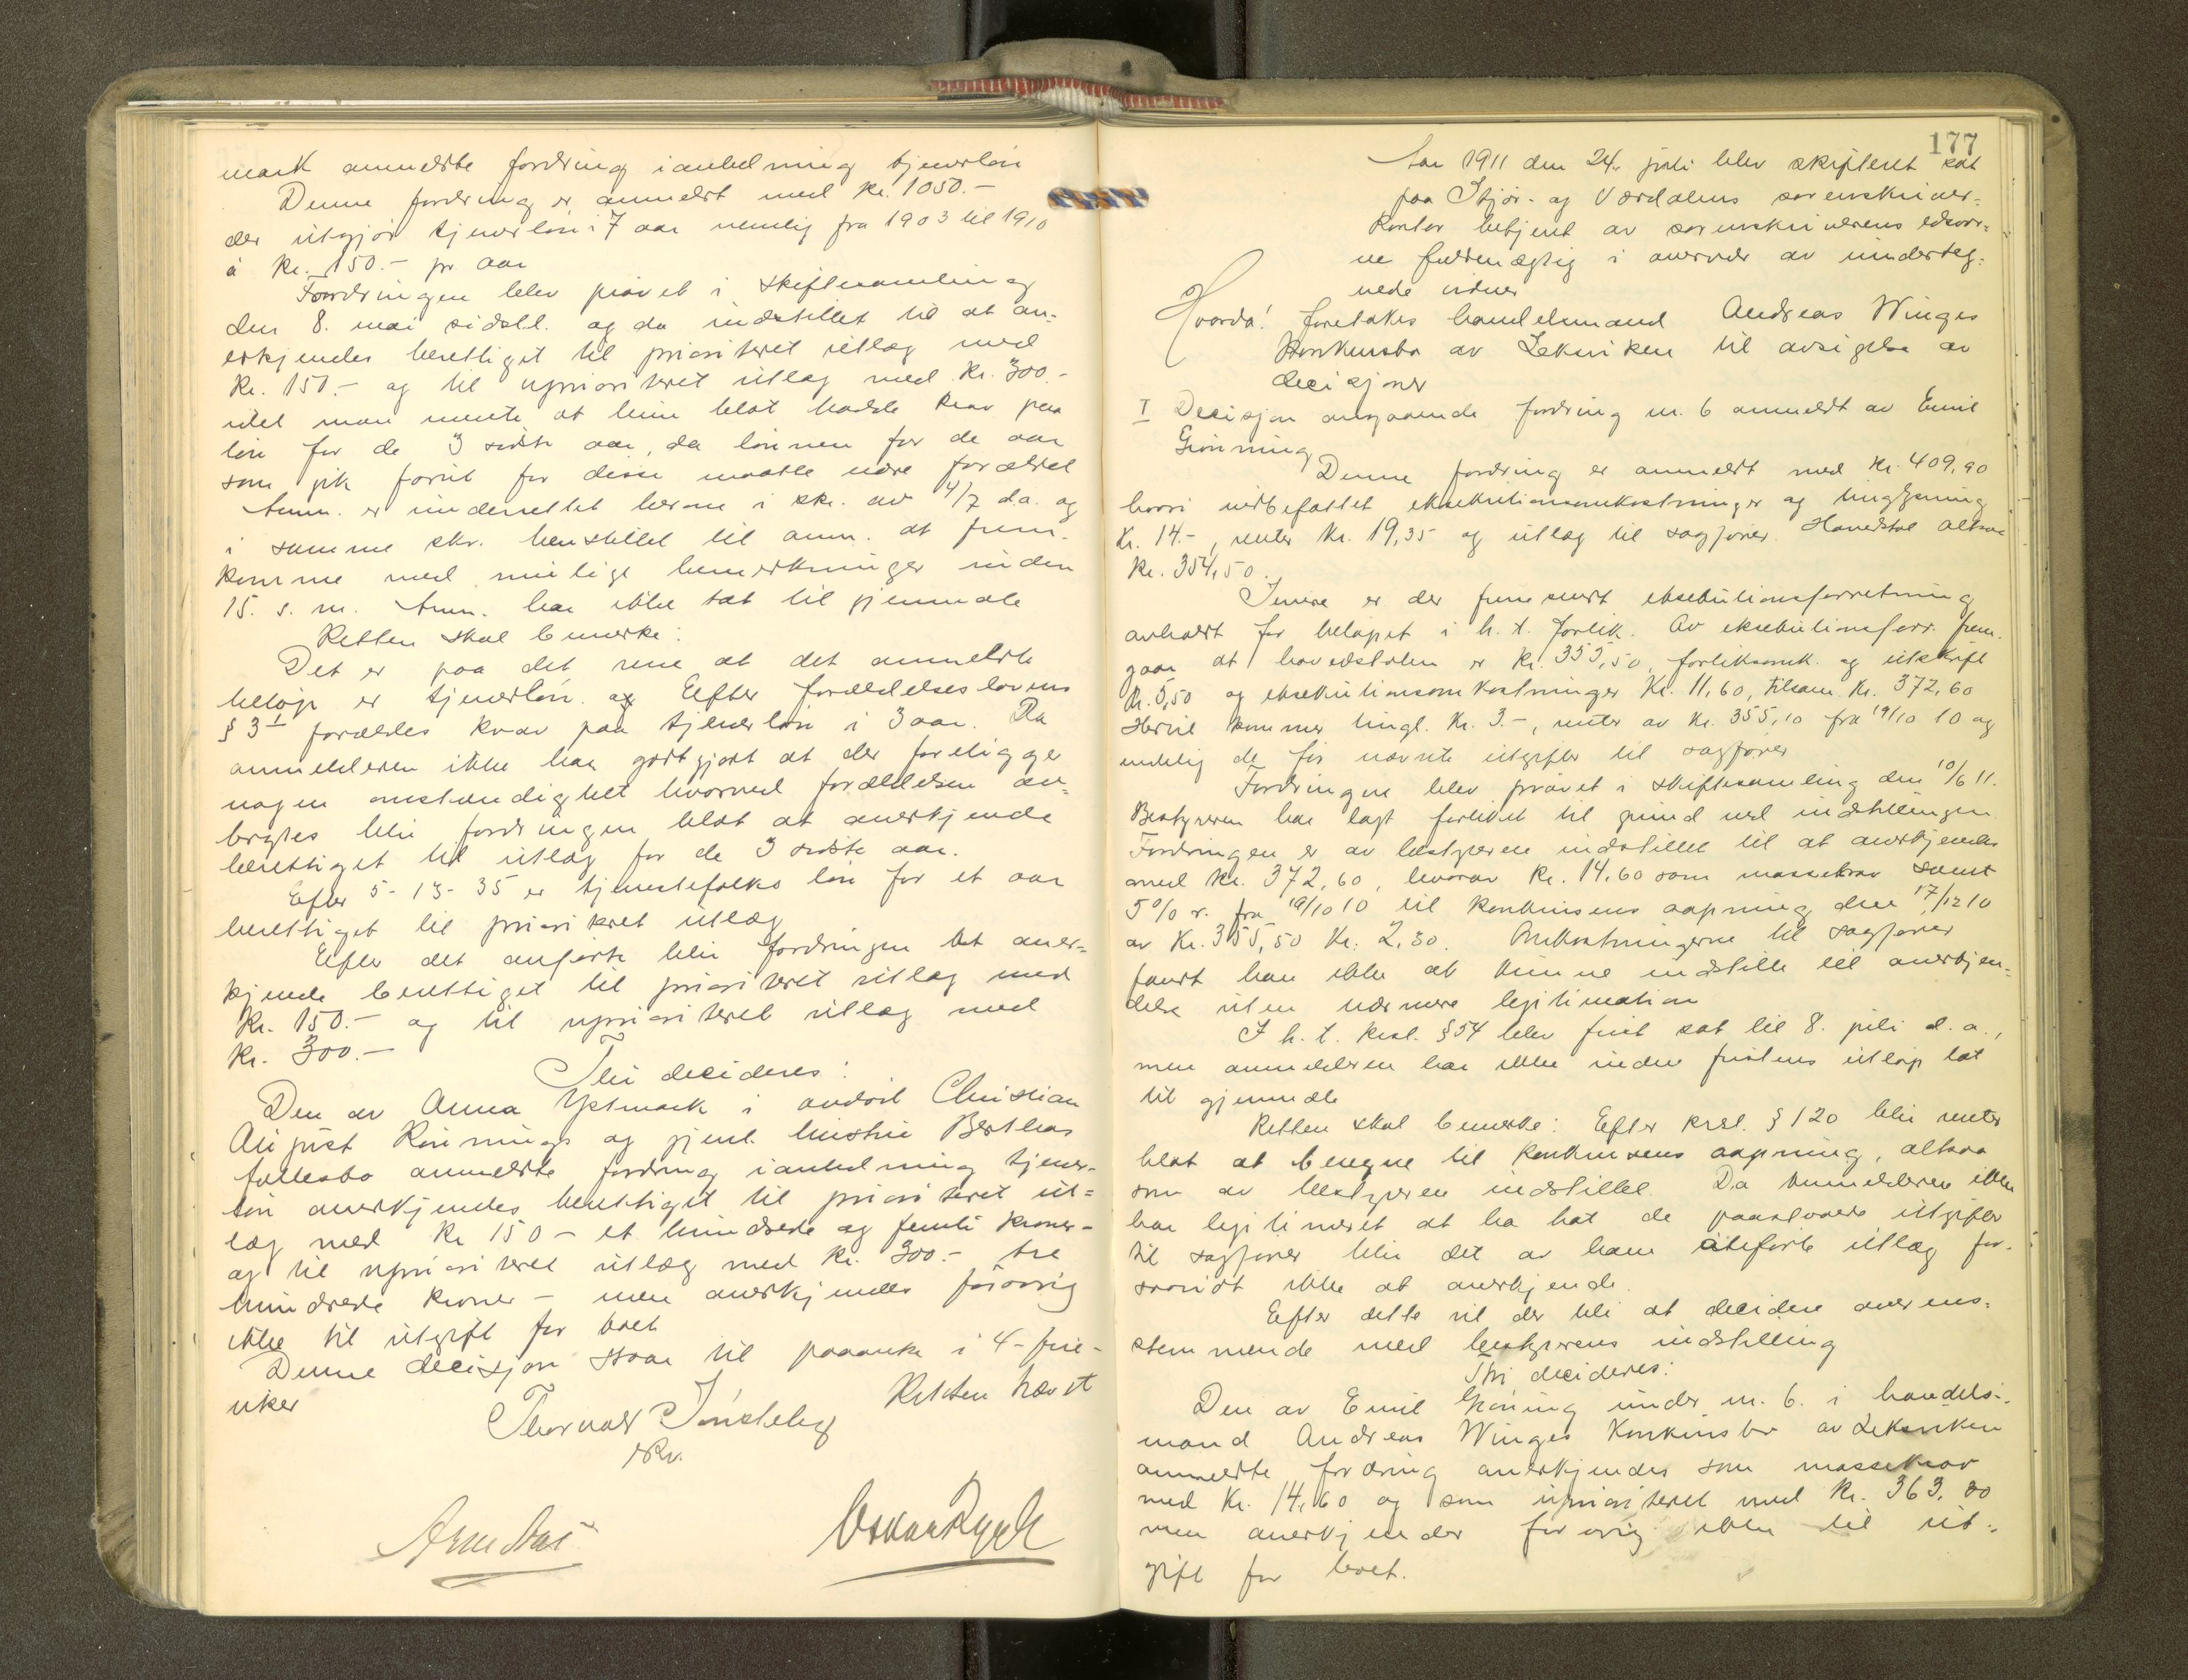 mark anmeldte fordring i anledning tjenerløn
Denne fordring er anmeldt med kr. 1050.-
der utgjør tjenerløn i 7 aar nemlig fra 1903 til 1910
á kr. 150.- pr aar
Fordringen blev prøvet i skiftesamling
den 8. mai sidstl. og da indstillet til at an-
erkjendes berettiget til prioritert utlæg med
kr. 150.- og til uprioritert utlæg med kr. 300.-
idet man mente at hun blot hadde krav paa
løn for de 3 sidste aar, da lønnen for de aar
som gik forut for disse maatte være forældet
Anm. er underrettet herom i skr. av 4/7 d.a. og
i samme skr. henstillet til anm. at frem-
komme med mulige bemerkninger inden
15. s. m. Anm. har ikke tat til gjenmæle
Retten skal bemerke:
Det er paa det rene at det anmeldte
beløp er tjenerløn. og Efter forældelseslovens
§ 3 1 forældes krav paa tjenerløn i 3 aar. Da
anmelderen ikke har godtgjort at der foreligger
nogen omstændighet hvorved forældelsen av-
brytes blir fordringen blot at anerkjende
berettiget til utlæg for de 3 sidste aar.
Efter 5-13-35 er tjenestefolks løn for et aar
berettiget til prioritert utlæg
Efter det anførte blir fordringen at aner-
kjende berettiget til prioritert utlæg med
kr. 150.- og til uprioritert utlæg med
kr. 300.-
Thi decideres:
Den av Anna Ystmark i avdød Christian
August Rønnings og gjenl. hustru Berthas
fællesbo anmeldte fordring i anledning tjener-
løn anerkjendes berettiget til prioritert ut-
læg med kr 150 - et hundrede og femti kroner -
og til uprioritert utlæg med kr. 300.- tre
hundrede kroner - men anerkjendes forøvrig
ikke til utgift for boet
Denne decisjon staar til paaanke i 4 - fire -
uker
Retten hævet
Thorvald
Skr.
177
Aar 1911 den 24. juli blev skifteret sat
paa Stjør- og Værdalens sorenskriver-
kontor betjent av sorenskriverens edsvor-
ne fuldmægtig i overvær av underteg-
nede vidner
Hvorda! foretokes handelsmand Andreas Winges
konkursbo av Leksviken til avsigelse av
decisjoner
I Decisjon angaaende fordring nr. 6 anmeldt av Emil
Grønning
Denne fordring er anmeldt med kr. 409,90
hvori indbefattet eksekutionsomkostninger og tinglysning
kr. 14.-, renter kr. 19,35 og utlæg til sagfører. Hovedstol altsaa
kr. 354,50.
Senere er der fremsendt eksekutionsforretning
avholdt for beløpet i h. t. forlik. Av eksekutionsforr. frem-
gaar at hovedstolen er kr. 355,50, forliksomk. og utskrift
kr. 5,50 og eksekutionsomkostninger kr. 11,60, tilsam. kr. 372,60
Hertil kommer tingl. kr. 3.-, renter av kr. 355,10 fra 19/10 10 og
endelig de før nævnte utgifter til sagfører
Fordringen blev prøvet i skiftesamling den 10/6 11.
Bestyreren har lagt forliket til grund ved indstillingen
Fordringen er av bestyreren indstillet til at anerkjendes
med kr. 372,60, hvorav kr. 14.60 som massekrav samt
5 % r. fra 19/10 10 til konkursens aapning den 17/12 10
av kr. 355,50 kr. 2,30. Omkostningerne til sagfører
fandt han ikke at kunne indstille til anerkjen-
delse uten nærmere legitimation
I h. t. krsl. § 54 blev frist sat til 8. juli d. a.,
men anmelderen har ikke inden fristens utløp tat
til gjenmæle
Retten skal bemerke: Efter krsl. § 120 blir renter
blot at beregne til konkursens aapning, altsaa
som av bestyreren indstillet. Da anmelderen ikke
har legitimeret at ha hat de paastaaede utgifter
til sagfører blir det av ham anførte utlæg for-
saavidt ikke at anerkjende.
Efter dette vil der bli at decidere overens-
stemmende med bestyrerens indstilling
Thi decideres:
Den av Emil Grøning under nr. 6. i handels-
mand Andreas Winges konkursbo av Leksviken
anmeldte fordring anerkjendes som massekrav
med kr. 14,60 og som uprioritert med kr. 363,80
men anerkjendes forøvrig ikke til ut-
gift for boet.